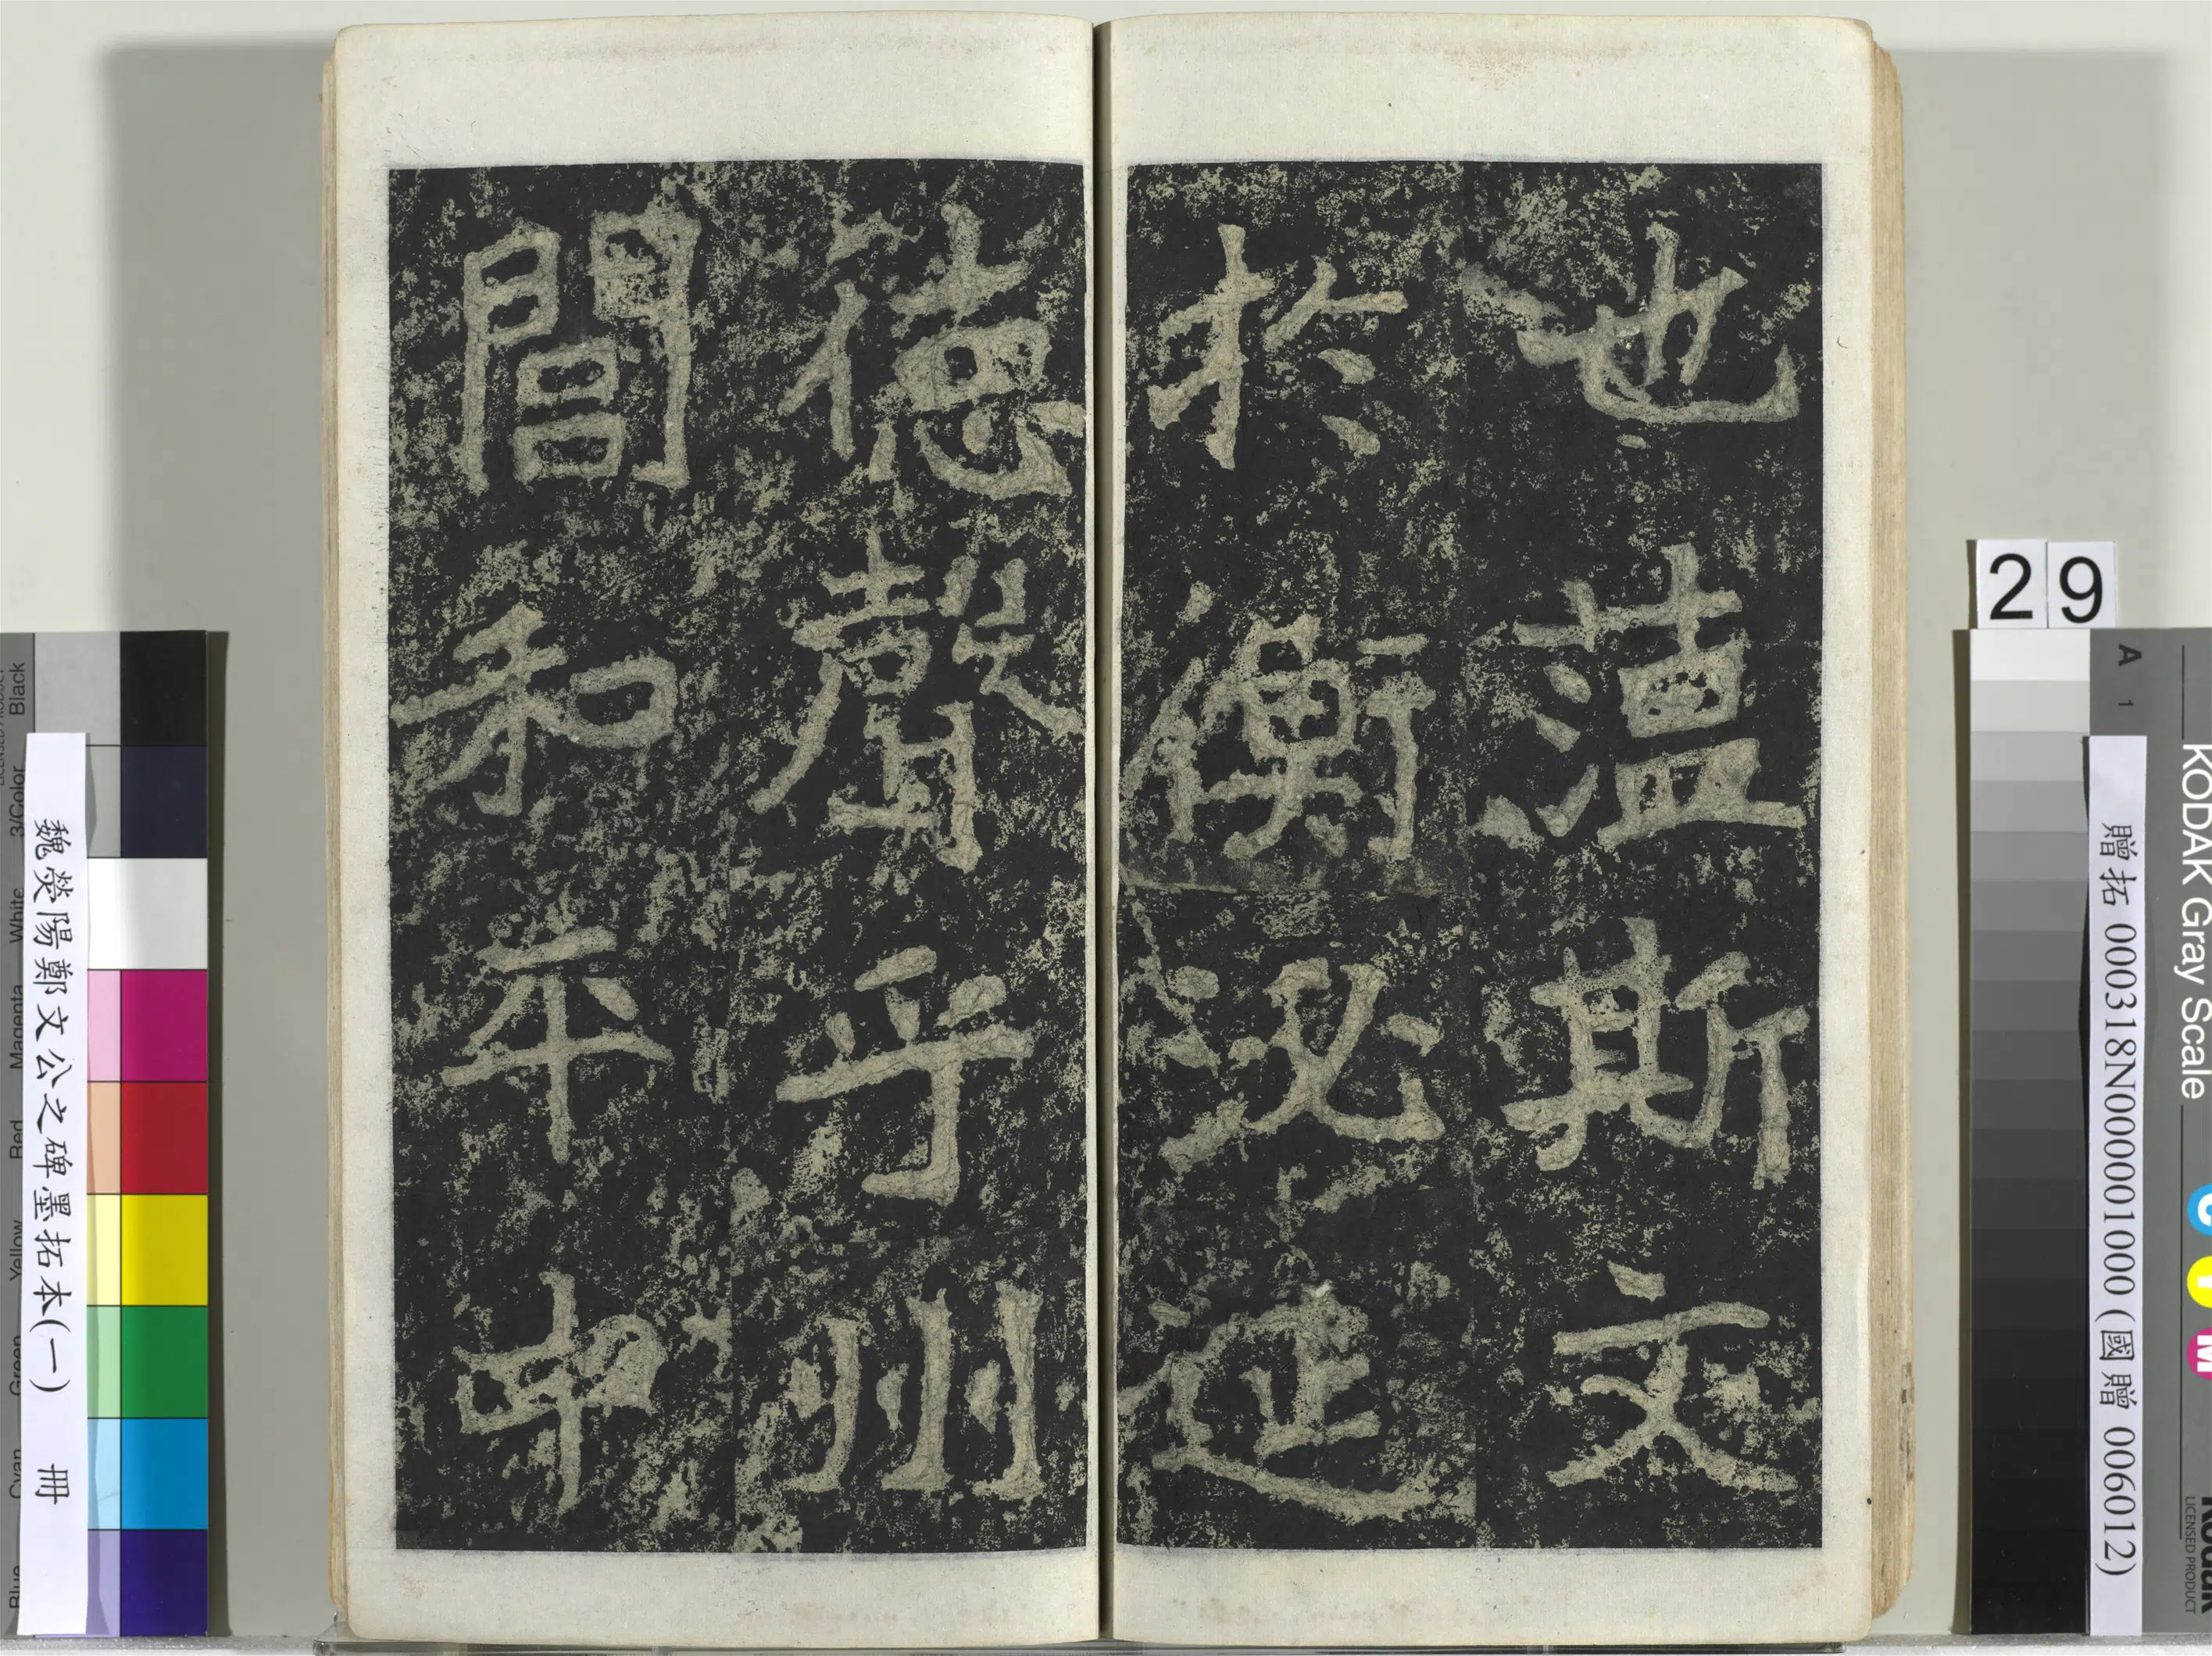 也蕰斯文
於衡泌延
德聲乎州
閭和平中
29
魏滎陽鄭文公之碑墨拓本(一) 冊
贈拓 000318N000001000 (國贈 006012)
KODAK Gray Scale
A 1
C Y M
Kodak
LICENSED PRODUCT
Black
3/Color
White
Magenta
Red
Yellow
Green
Cyan
Blue